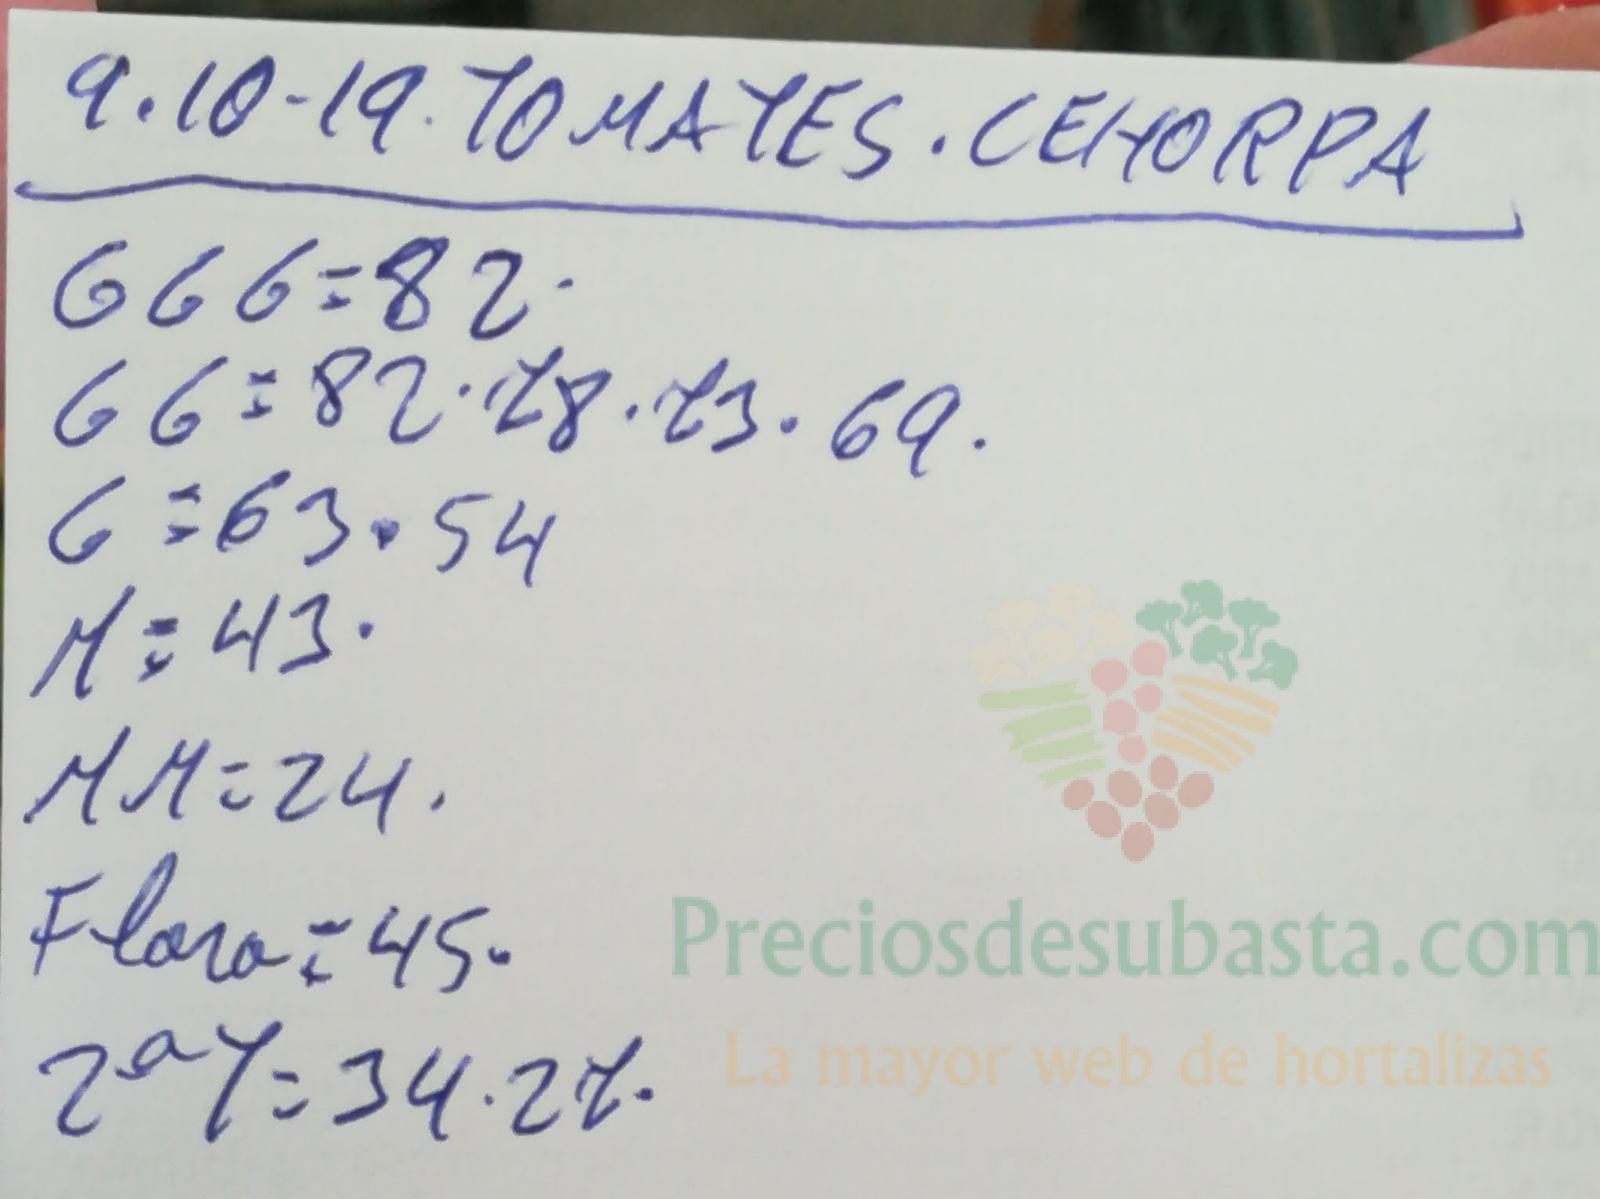 9.10-19.TOMATES.CEHORPA
GGG=82.
GG=82.78.73.69.
G=63.54
M=43.
MM=24.
Preciosdesubasta.com
Floro=45.
La mayor web de hortalizas
2ªT=34.27.